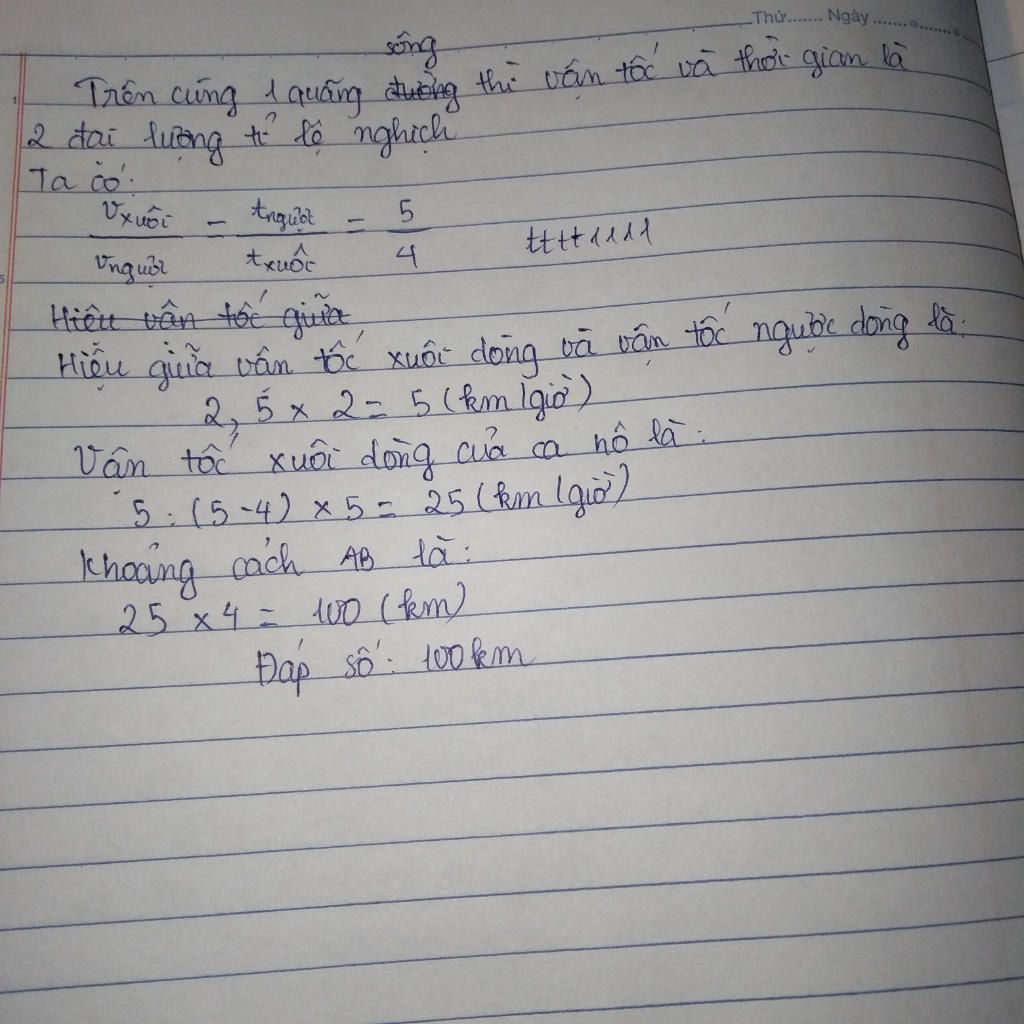 Thứ....... Ngày.......
sông
Trên cùng 1 quãng đường thì vận tốc và thời gian là
2 đại lượng tỉ lệ nghịch
Ta có:
Vxuôi / Vngược = tngược / txuôi = 5 / 4
Hiệu vận tốc giữa
Hiệu giữa vận tốc xuôi dòng và vận tốc ngược dòng là:
2,5 x 2 = 5 (km/giờ)
Vận tốc xuôi dòng của ca nô là:
5 : (5-4) x 5 = 25 (km/giờ)
Khoảng cách AB là:
25 x 4 = 100 (km)
Đáp số: 100km